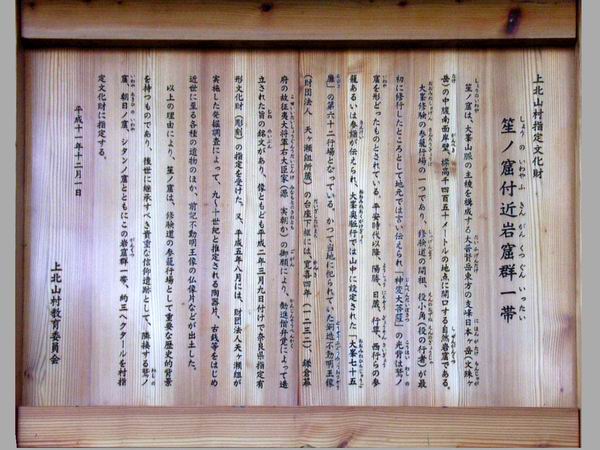 上北山村指定文化財
笙ノ窟付近岩窟群一帯
しょうの いわやふ きん がん くつ ぐん いったい
笙ノ窟は、大峯山脈の主稜を構成する大普賢岳東方の支峰日本ヶ岳（文殊ヶ
岳）の中腹南面岸壁、標高千四百五十メートルの地点に開口する自然岩窟である。
大峯修験の参籠行場の一つであり、修験道の開祖、役小角（役の行者）が最
初に修行したところとして地元では言い伝えられ「神変大菩薩」の光背は笙ノ
窟を形どったものとされている。平安時代以降、陽勝、日蔵、行尊、西行らの参
籠あるいは参詣が伝えられ、大峯奥駈行では山中に設定された「大峯七十五
靡」の第六十二行場となっている。かつて当地に祀られていた銅造不動明王像
（財団法人 天ヶ瀬組所蔵）の台座下框には、寛喜四年（一二三二）、鎌倉幕
府の故征夷大将軍右大臣家（源 実朝か）の御願により、勧進僧弁覚によって造
立された旨の銘文があり、像ともども平成二年三月九日付けで奈良県指定有
形文化財（彫刻）の指定を受けた。又、平成五年八月には、財団法人天ヶ瀬組が
実施した発掘調査によって、九〜十世紀と推定される陶器片、古銭等をはじめ
近世に至る各種の遺物のほか、前記不動明王像の仏像片などが出土した。
以上の理由により、笙ノ窟は、修験道の参籠行場として重要な歴史的背景
を持つものであり、後世に継承すべき貴重な信仰遺跡として、隣接する鷲ノ
窟、朝日ノ窟、シタンノ窟とともにこの岩窟群一帯、約三ヘクタールを村指
定文化財に指定する。
平成十一年十二月一日
上北山村教育委員会